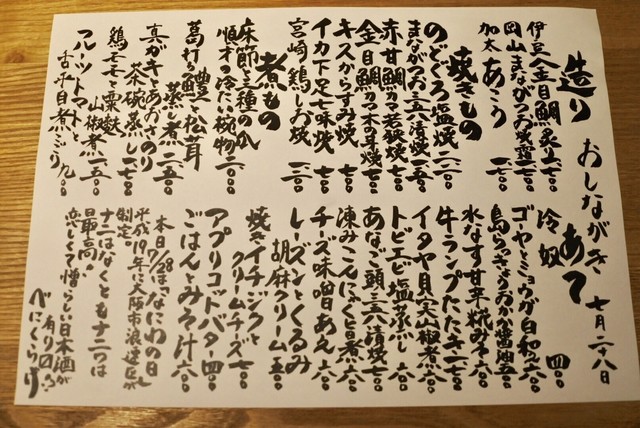 おしながき 七月二十八日
造り
伊豆八金目鯛炙り 一七〇〇
岡山まながつお炊霜 一五〇〇
加太あこう 一八〇〇
焼きもの
のどぐろ塩焼 二八〇〇
まながつお三五八漬焼 一二〇〇
赤甘鯛カマ若狭焼 一五〇〇
金目鯛カマ木の芽焼 一七〇〇
キスからすみ焼 七〇〇
イカ下足七味焼 七〇〇
宮崎鶏しお焼 一二〇〇
煮もの
床節と三種の瓜
順才の冷たい椀物 二〇〇〇
葛打ち鱧と松茸
蒸し煮 二八五〇
真ガキとあおさのり
茶碗蒸し 一七〇〇
鶏モモと粟麩
山椒煮 一五〇〇
フルーツトマトと
舌平目煮こごり 九〇〇
あて
冷奴 四〇〇
ゴーヤとミョウガ白和え 六〇〇
島らっきょうおかか醤油 五〇〇
水なす甘辛糀みそ 六〇〇
牛ランプたたき 一七〇〇
イタヤ貝実山椒煮 六〇〇
トビエビ塩蒸し 六〇〇
あなご頭三五八漬焼 七〇〇
凍みこんにゃく旨煮 六〇〇
チーズ味噌あえ 六〇〇
レーズンとくるみ
胡麻クリーム 五〇〇
焼きイチジクと
クリームチーズ 七〇〇
アプリコットバター 四〇〇
ごはんとみそ汁 六〇〇
本日7/28は“なにわの日”
平成19年に大阪市浪速区が
制定。
ナニはなくともナニワは
“最高”
恋しくて憎らしい日本酒が
有り〼
べにくらげ